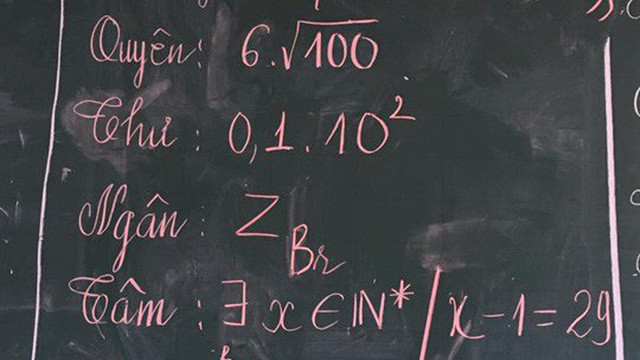 Quyên: 6.√100
Thư: 0,1.10²
Ngân: Z_Br
Tâm: ∃ x ∈ IN* / x - 1 = 29